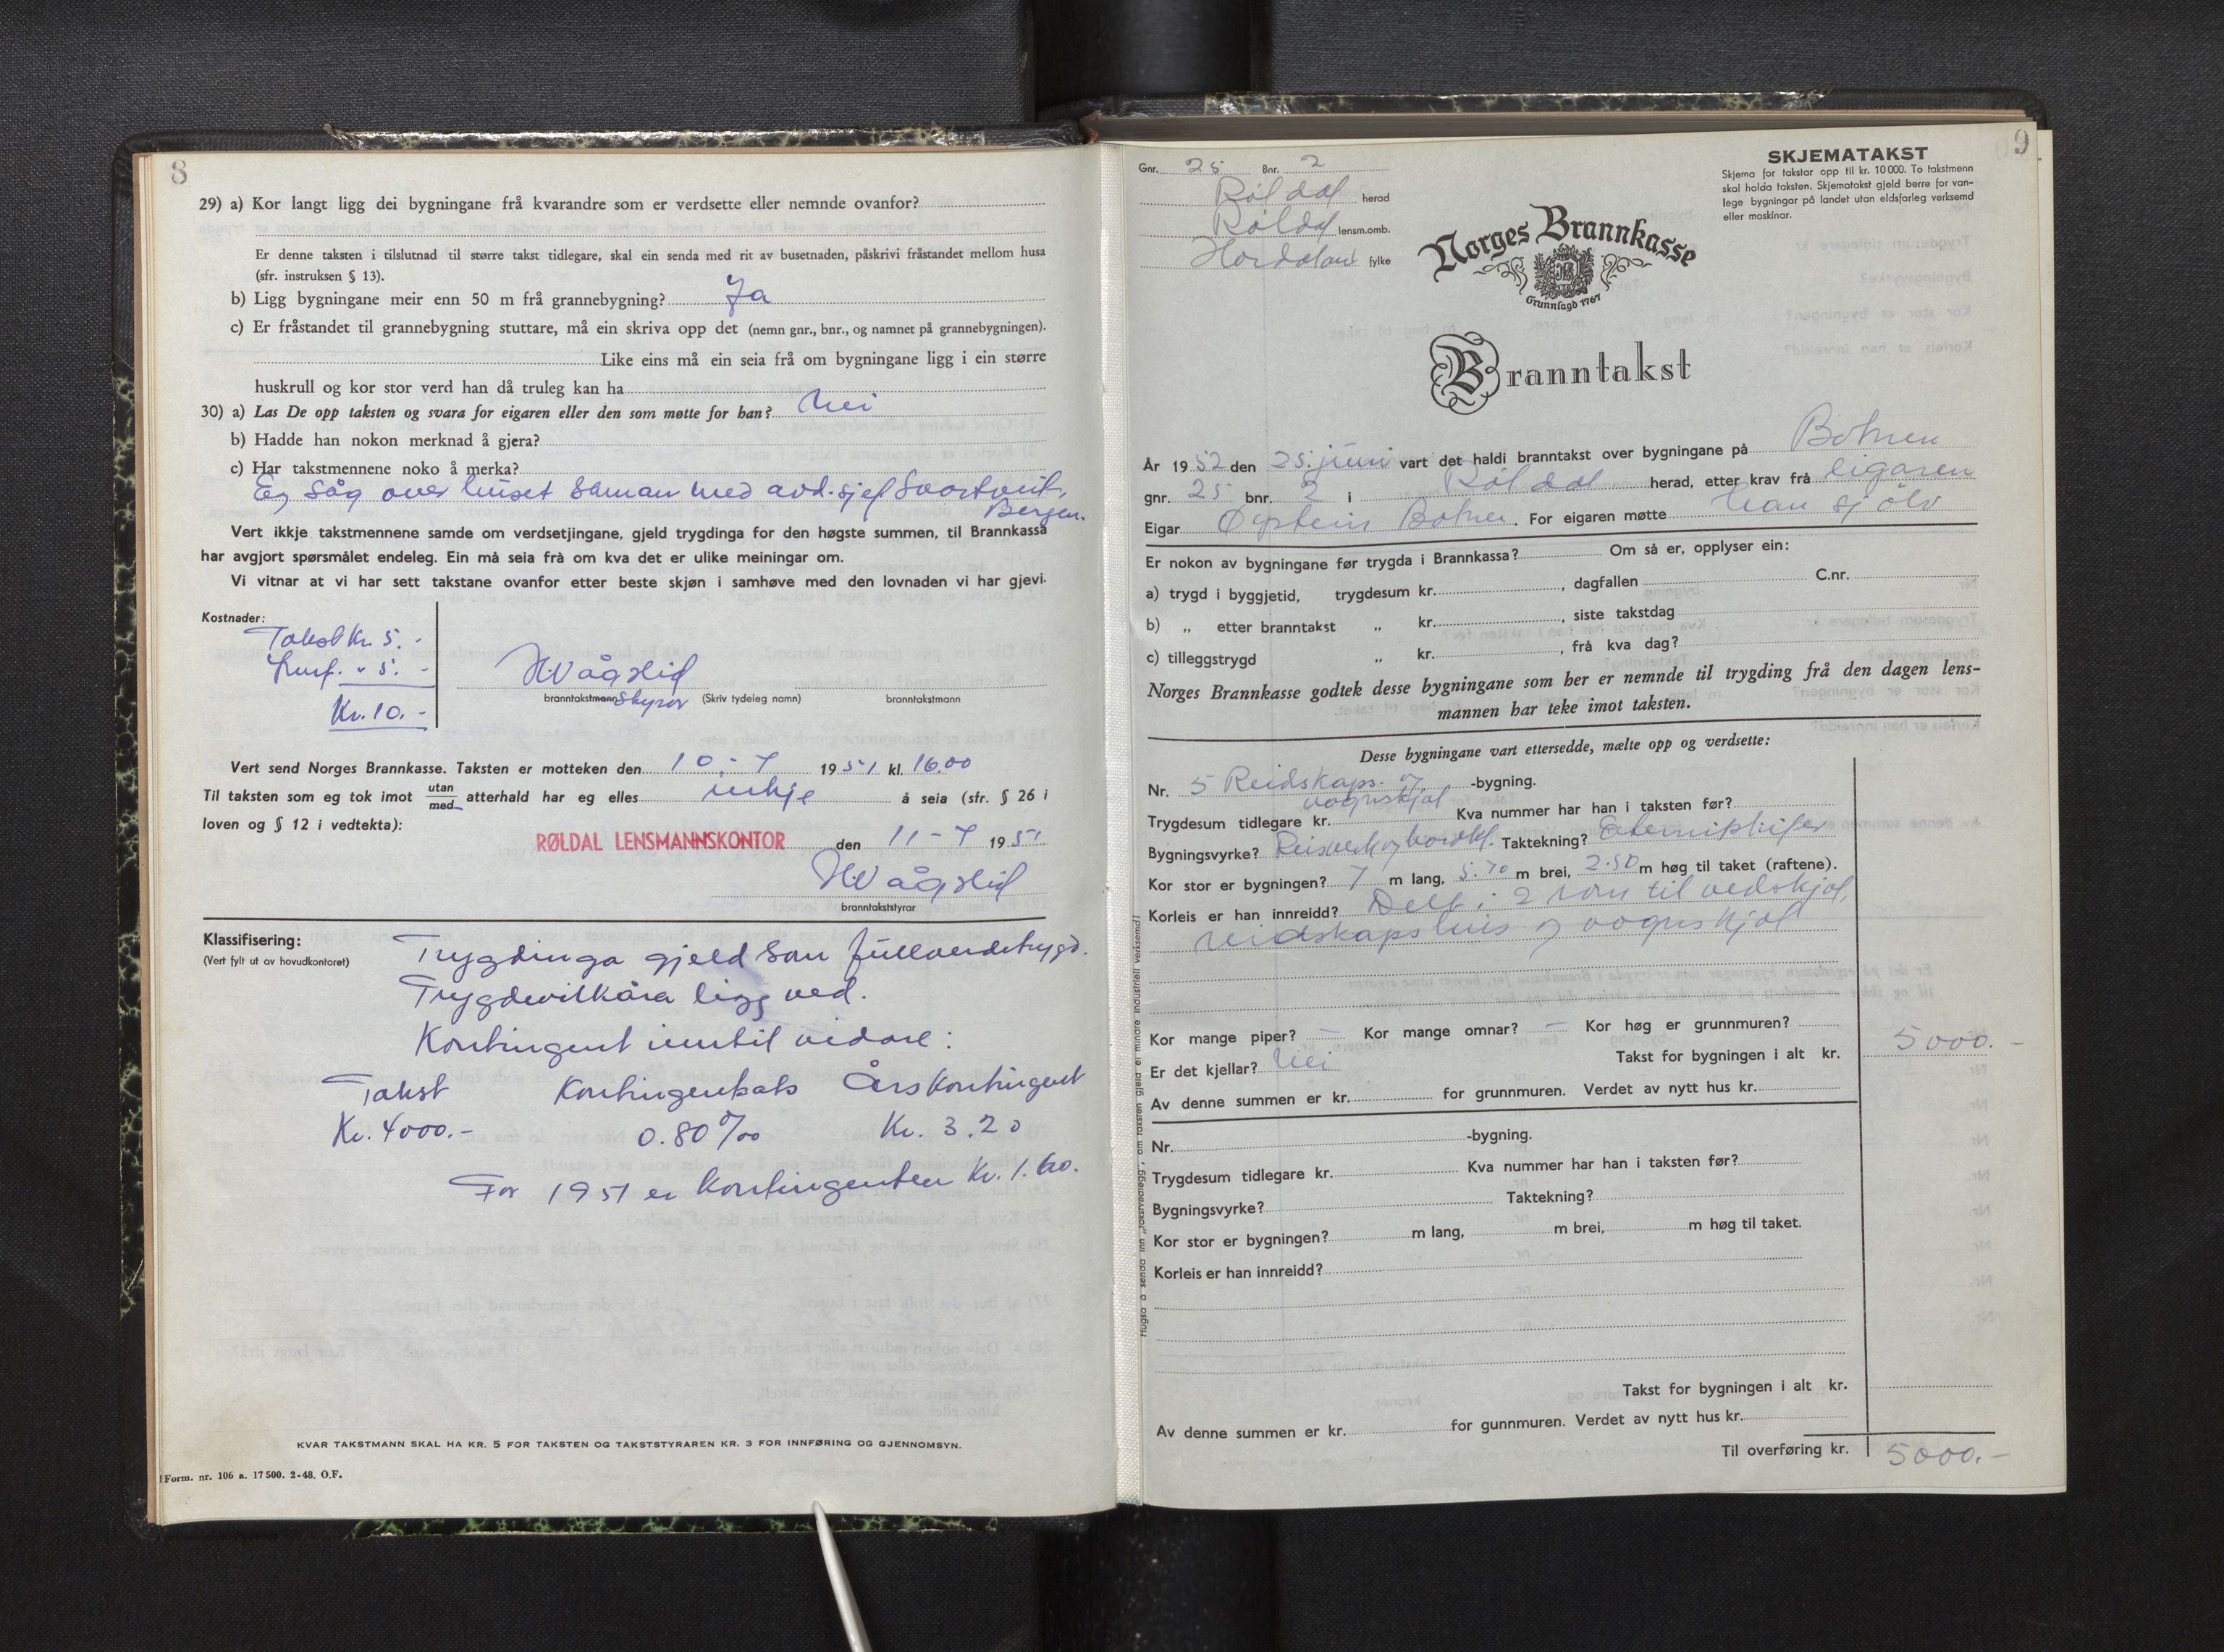 8
29) a) Kor langt ligg dei bygningane frå kvarandre som er verdsette eller nemnde ovanfor?
Er denne taksten i tilslutnad til større takst tidlegare, skal ein senda med rit av busetnaden, påskrivi fråstandet mellom husa
(sfr. instruksen § 13).
b) Ligg bygningane meir enn 50 m frå grannebygning? Ja
c) Er fråstandet til grannebygning stuttare, må ein skriva opp det (nemn gnr., bnr., og namnet på grannebygningen).
Like eins må ein seia frå om bygningane ligg i ein større
huskrull og kor stor verd han då truleg kan ha
30) a) Las De opp taksten og svara for eigaren eller den som møtte for han? Nei
b) Hadde han nokon merknad å gjera?
c) Har takstmennene noko å merka?
Eg såg over huset saman med avd.sjef Svortveit,
Bergen.
Vert ikkje takstmennene samde om verdsetjingane, gjeld trygdinga for den høgste summen, til Brannkassa
har avgjort spørsmålet endeleg. Ein må seia frå om kva det er ulike meiningar om.
Vi vitnar at vi har sett takstane ovanfor etter beste skjøn i samhøve med den lovnaden vi har gjevi.
Kostnader:
Takst Kr. 5.-
" 5. -
Kr. 10.-
H Vågslid
branntakstmann styrar (Skriv tydeleg namn) branntakstmann
Vert send Norges Brannkasse. Taksten er motteken den 10.-7 1951 kl. 16.00
Til taksten som eg tok imot utan/med atterhald har eg elles inkje å seia (sfr. § 26 i
loven og § 12 i vedtekta):
RØLDAL LENSMANNSKONTOR den 11-7 1951
H Vågslid
branntakststyrar
Klassifisering:
(Vert fylt ut av hovudkontoret)
Trygdinga gjeld som fullverdetrygd.
Trygdevilkåra ligg ved.
Kontingent inntil vidare:
Takst Kontingentsats Årskontingent
Kr. 4000.- 0.80 ‰ Kr. 3.20
For 1951 er kontingenten Kr. 1.60.
KVAR TAKSTMANN SKAL HA KR. 5 FOR TAKSTEN OG TAKSTSTYRAREN KR. 3 FOR INNFØRING OG GJENNOMSYN.
Form. nr. 106 a. 17 500. 2-48. O.F.
9
Gnr. 25 Bnr. 2
Røldal herad
Røldal lensm.omb.
Hordaland fylke
SKJEMATAKST
Skjema for takstar opp til kr. 10 000. To takstmenn
skal halda taksten. Skjematakst gjeld berre for van-
lege bygningar på landet utan eldsfarleg verksemd
eller maskinar.
Norges Brannkasse
Grunnlagd 1767
Branntakst
År 1952 den 25. juni vart det haldi branntakst over bygningane på Botnen
gnr. 25 bnr. 2 i Røldal herad, etter krav frå eigaren
Eigar Øystein Botnen. For eigaren møtte han sjølv
Er nokon av bygningane før trygda i Brannkassa? Om så er, opplyser ein:
a) trygd i byggjetid, trygdesum kr. , dagfallen C.nr.
b) „ etter branntakst „ kr. , siste takstdag
c) tilleggstrygd „ kr. , frå kva dag?
Norges Brannkasse godtek desse bygningane som her er nemnde til trygding frå den dagen lens-
mannen har teke imot taksten.
Desse bygningane vart ettersedde, mælte opp og verdsette:
Nr. 5 Reidskaps- og vognskjol -bygning.
Trygdesum tidlegare kr. Kva nummer har han i taksten før?
Bygningsvyrke? Reisverk og bordkl. Taktekning? Eternitskifer
Kor stor er bygningen? 7 m lang, 5.70 m brei, 2.50 m høg til taket (raftene).
Korleis er han innreidd? Delt i 2 rom til vedskjol,
reidskapshus og vognskjol
Kor mange piper? — Kor mange omnar? — Kor høg er grunnmuren?
Er det kjellar? Nei Takst for bygningen i alt kr. 5000.-
Av denne summen er kr. for grunnmuren. Verdet av nytt hus kr.
Nr. -bygning.
Trygdesum tidlegare kr. Kva nummer har han i taksten før?
Bygningsvyrke? Taktekning?
Kor stor er bygningen? m lang, m brei, m høg til taket.
Korleis er han innreidd?
Takst for bygningen i alt kr.
Av denne summen er kr. for gunnmuren. Verdet av nytt hus kr.
Til overføring kr. 5000.-
Hugsa å senda inn „takstvedlegg", om taksten gjeld ei mindre industriell verksemd!